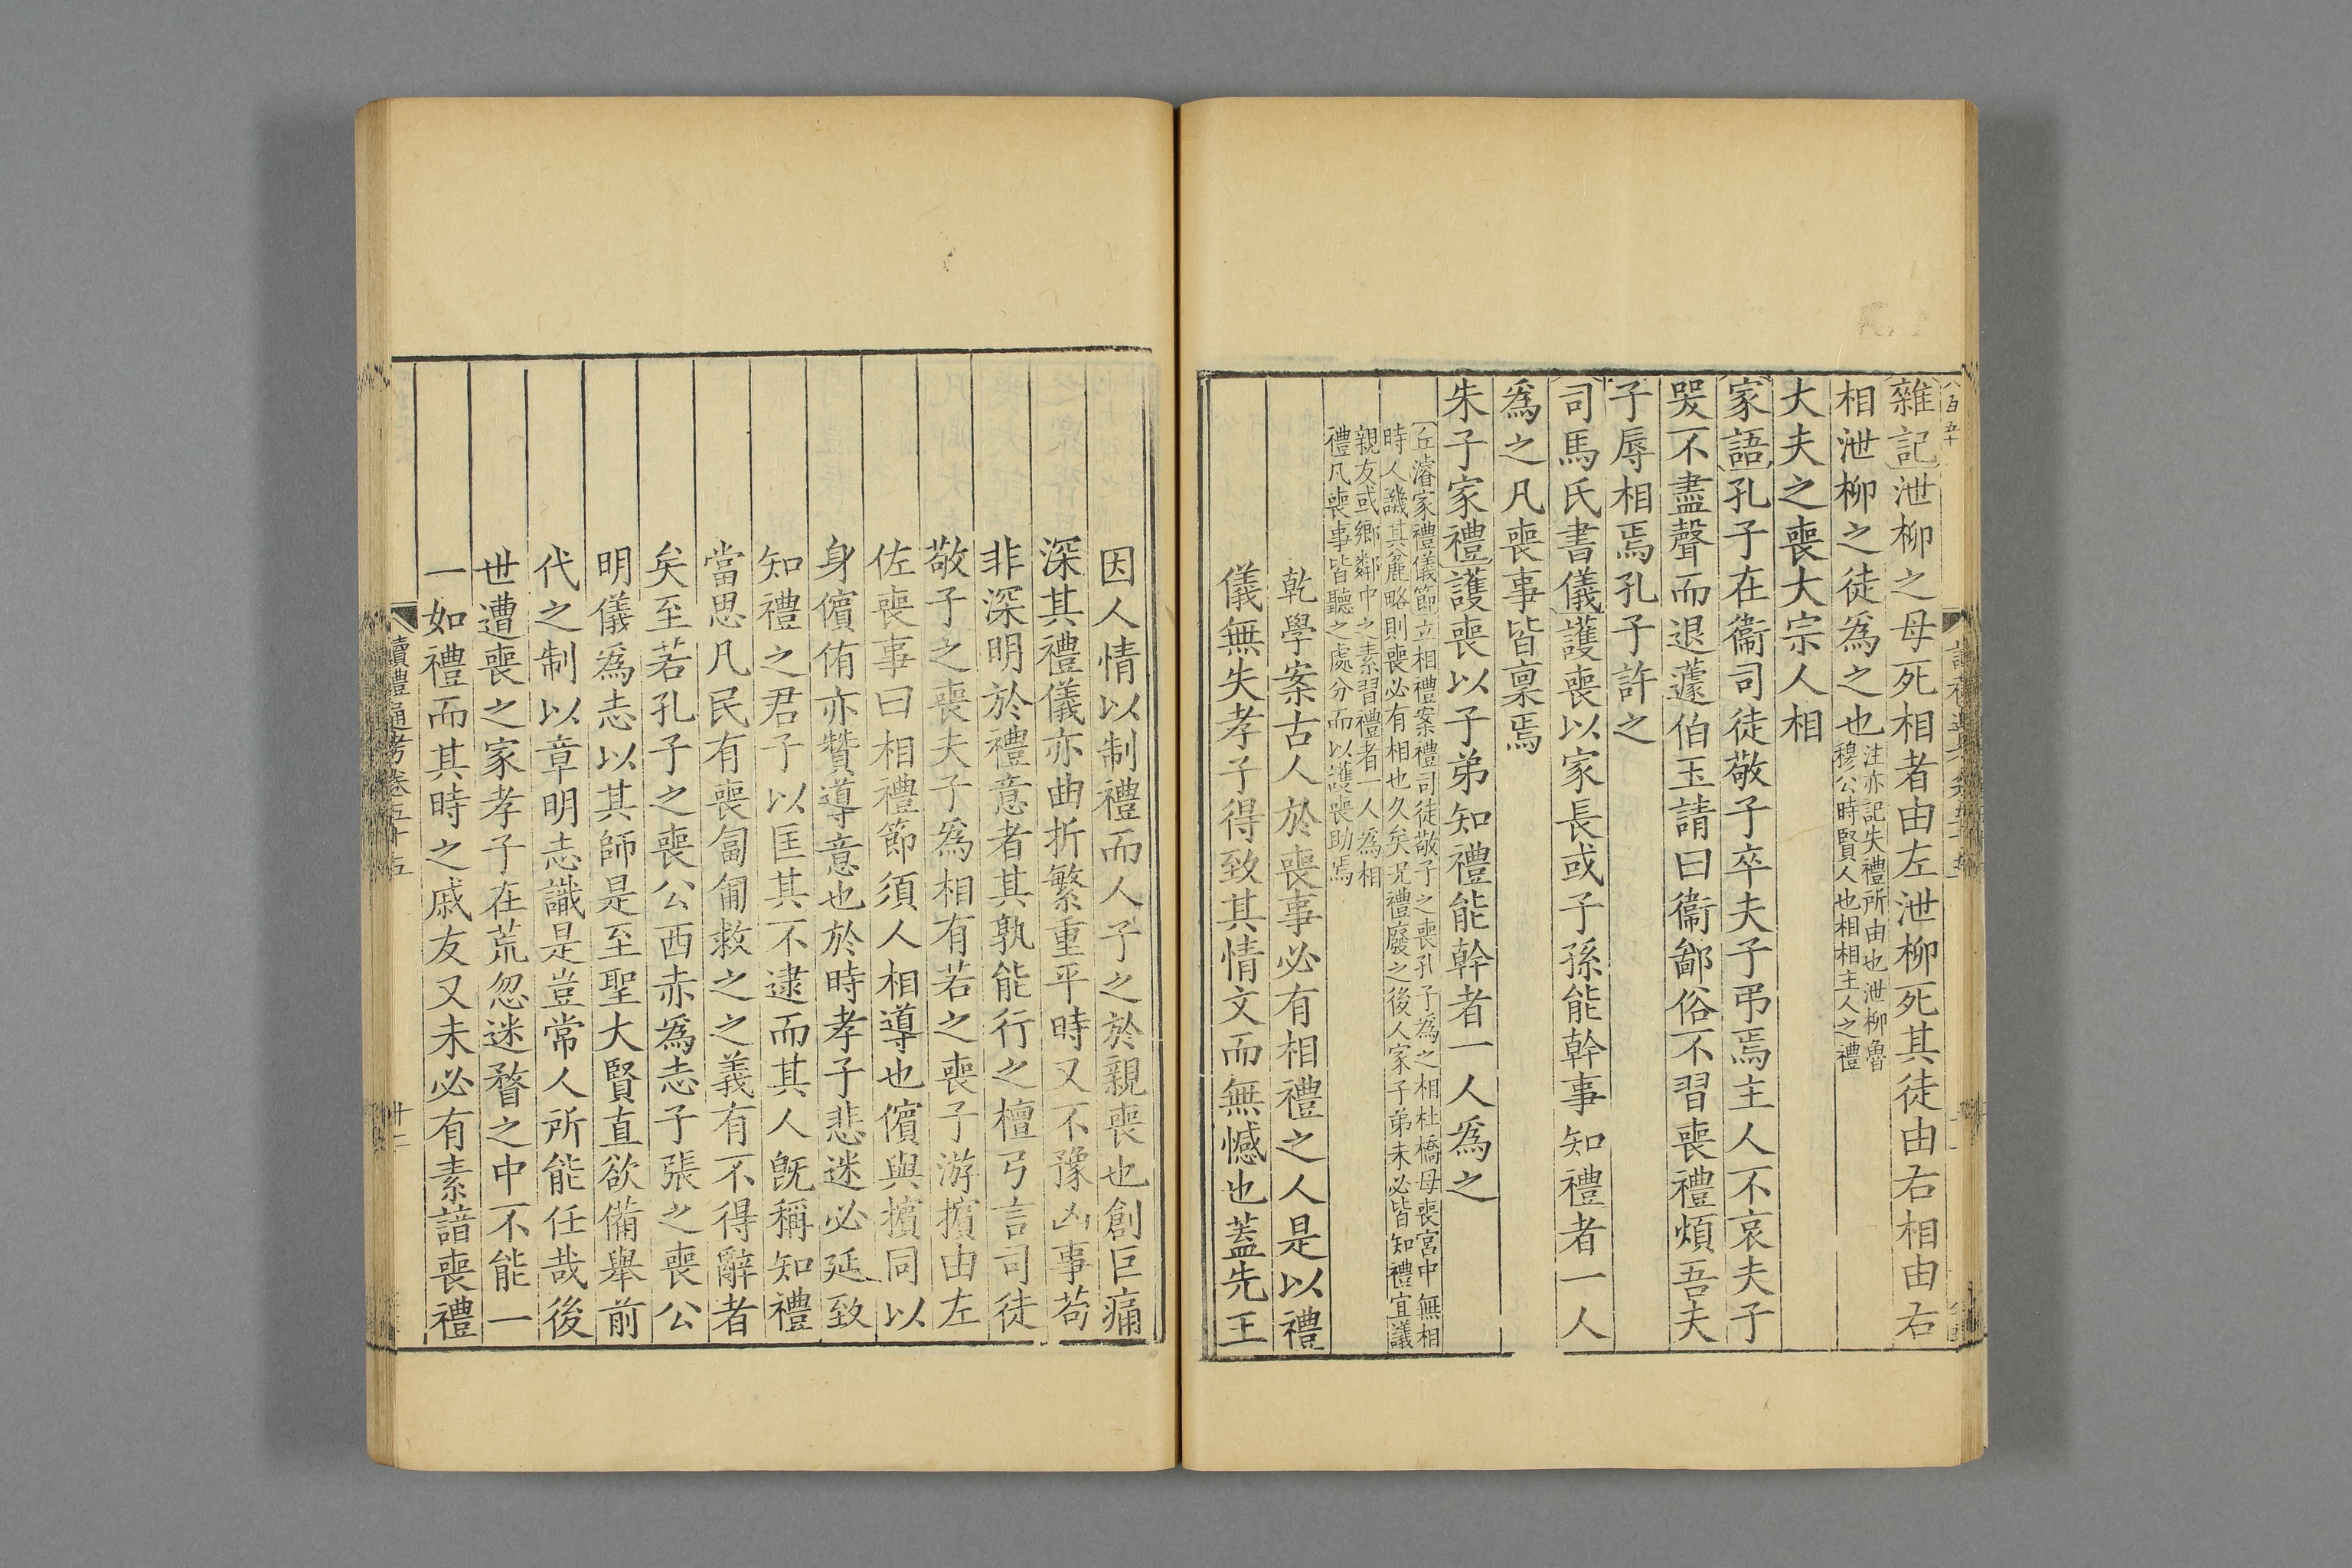 八百五十
雜記泄柳之母死相者由左泄柳死其徒由右相由右
相泄柳之徒為之也注亦記失禮所由也泄柳魯
穆公時賢人也相相主人之禮
大夫之喪大宗人相
家語孔子在衞司徒敬子卒夫子弔焉主人不哀夫子
哭不盡聲而退蘧伯玉請曰衞鄙俗不習喪禮煩吾夫
子辱相焉孔子許之
司馬氏書儀護喪以家長或子孫能幹事知禮者一人
爲之凡喪事皆稟焉
朱子家禮護喪以子弟知禮能幹者一人爲之
丘濬家禮儀節立相禮案禮司徒敬子之喪孔子為之相杜橋母喪宮中無相
時人譏其麄略則喪必有相也久矣况禮廢之後人家子弟未必皆知禮宜議
親友或鄉鄰中之素習禮者一人為相
禮凡喪事皆聽之處分而以護喪助焉
乾學案古人於喪事必有相禮之人是以禮
儀無失孝子得致其情文而無憾也蓋先王
因人情以制禮而人子之於親喪也創巨痛
深其禮儀亦曲折繁重平時又不豫凶事苟
非深明於禮意者其孰能行之檀弓言司徒
敬子之喪夫子爲相有若之喪子游擯由左
佐喪事曰相禮節須人相導也儐與擯同以
身儐侑亦贊導意也於時孝子悲迷必延致
知禮之君子以匡其不逮而其人旣稱知禮
當思凡民有喪匍匐救之之義有不得辭者
矣至若孔子之喪公西赤爲志子張之喪公
明儀爲志以其師是至聖大賢直欲備舉前
代之制以章明志識是豈常人所能任哉後
世遭喪之家孝子在荒忽迷瞀之中不能一
一如禮而其時之戚友又未必有素諳喪禮
讀禮通考卷五十五
十二